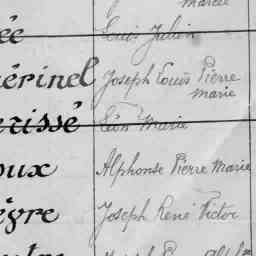 Marcel
ée Louis Julien
érinel Joseph Louis Pierre
Marie
érissé Léon Marie
oux Alphonse Pierre Marie
èvre Joseph René Victor
Joseph